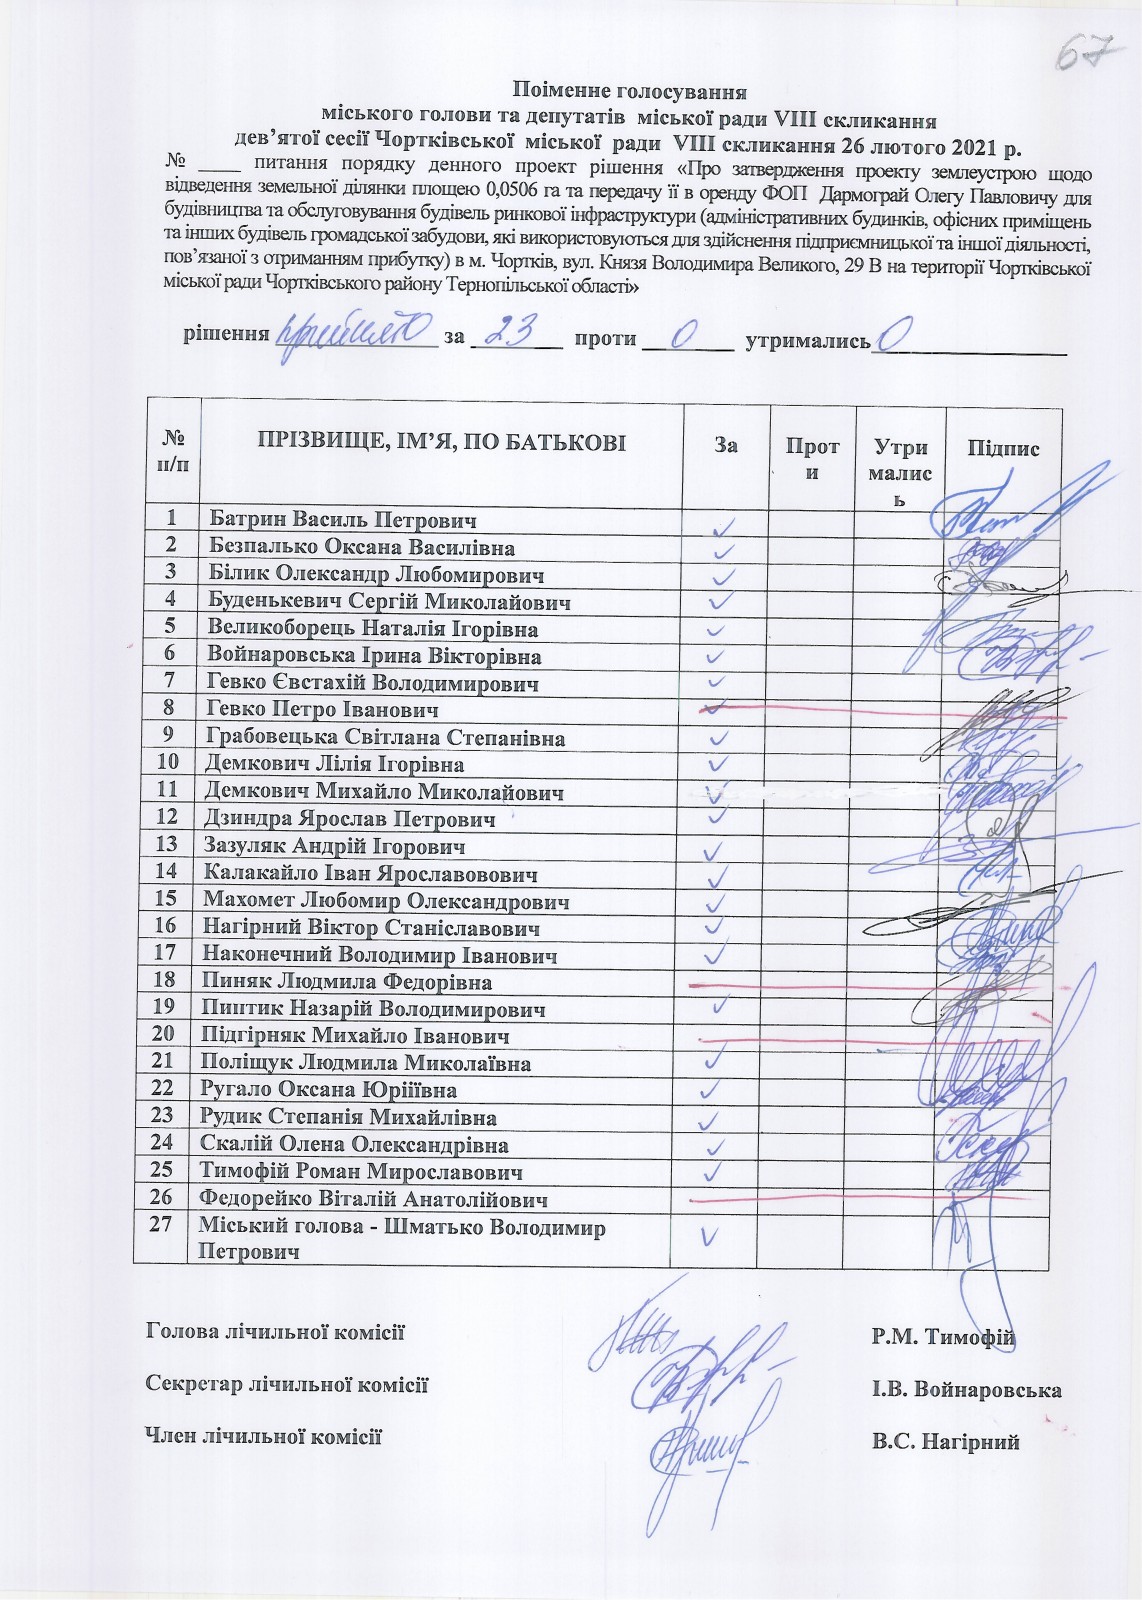 67
Поіменне голосування
міського голови та депутатів міської ради VІІІ скликання
дев’ятої сесії Чортківської міської ради VІІІ скликання 26 лютого 2021 р.
№ ____ питання порядку денного проект рішення «Про затвердження проекту землеустрою щодо
відведення земельної ділянки площею 0,0506 га та передачу її в оренду ФОП Дармограй Олегу Павловичу для
будівництва та обслуговування будівель ринкової інфраструктури (адміністративних будинків, офісних приміщень
та інших будівель громадської забудови, які використовуються для здійснення підприємницької та іншої діяльності,
пов’язаної з отриманням прибутку) в м. Чортків, вул. Князя Володимира Великого, 29 В на території Чортківської
міської ради Чортківського району Тернопільської області»
рішення прийнято за 23 проти 0 утримались 0
№ п/п ПРІЗВИЩЕ, ІМ’Я, ПО БАТЬКОВІ За Прот и Утри малис ь Підпис
1 Батрин Василь Петрович
2 Безпалько Оксана Василівна
3 Білик Олександр Любомирович
4 Буденькевич Сергій Миколайович
5 Великоборець Наталія Ігорівна
6 Войнаровська Ірина Вікторівна
7 Гевко Євстахій Володимирович
8 Гевко Петро Іванович
9 Грабовецька Світлана Степанівна
10 Демкович Лілія Ігорівна
11 Демкович Михайло Миколайович
12 Дзиндра Ярослав Петрович
13 Зазуляк Андрій Ігорович
14 Калакайло Іван Ярославовович
15 Махомет Любомир Олександрович
16 Нагірний Віктор Станіславович
17 Наконечний Володимир Іванович
18 Пиняк Людмила Федорівна
19 Пиптик Назарій Володимирович
20 Підгірняк Михайло Іванович
21 Поліщук Людмила Миколаївна
22 Ругало Оксана Юріїївна
23 Рудик Степанія Михайлівна
24 Скалій Олена Олександрівна
25 Тимофій Роман Мирославович
26 Федорейко Віталій Анатолійович
27 Міський голова - Шматько Володимир
Петрович
Голова лічильної комісії Р.М. Тимофій
Секретар лічильної комісії І.В. Войнаровська
Член лічильної комісії В.С. Нагірний